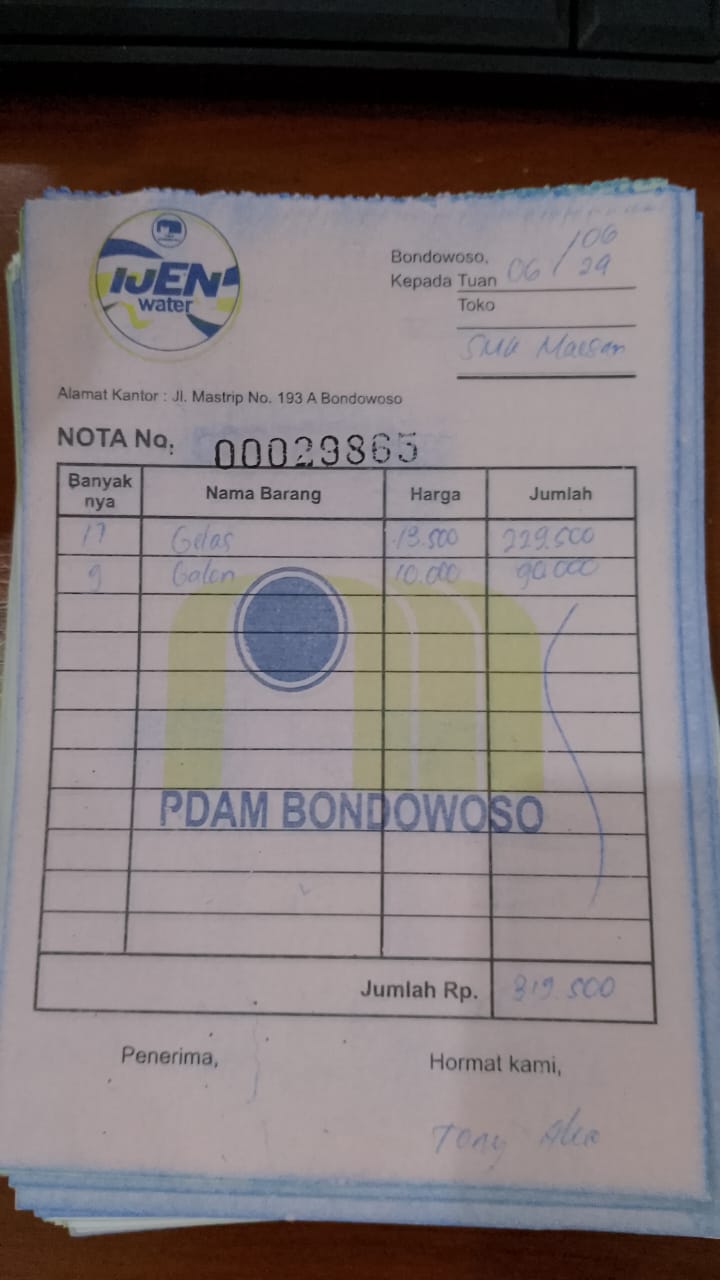 IJEN
water
Bondowoso, 06/06
Kepada Tuan 29
Toko
SMK Maesan
Alamat Kantor : Jl. Mastrip No. 193 A Bondowoso
NOTA No. 00029865
Banyak nya Nama Barang Harga Jumlah
17 Gelas 13.500 229.500
9 Galon 10.000 90.000
PDAM BONDOWOSO
Jumlah Rp. 319.500
Penerima, Hormat kami,
Tony